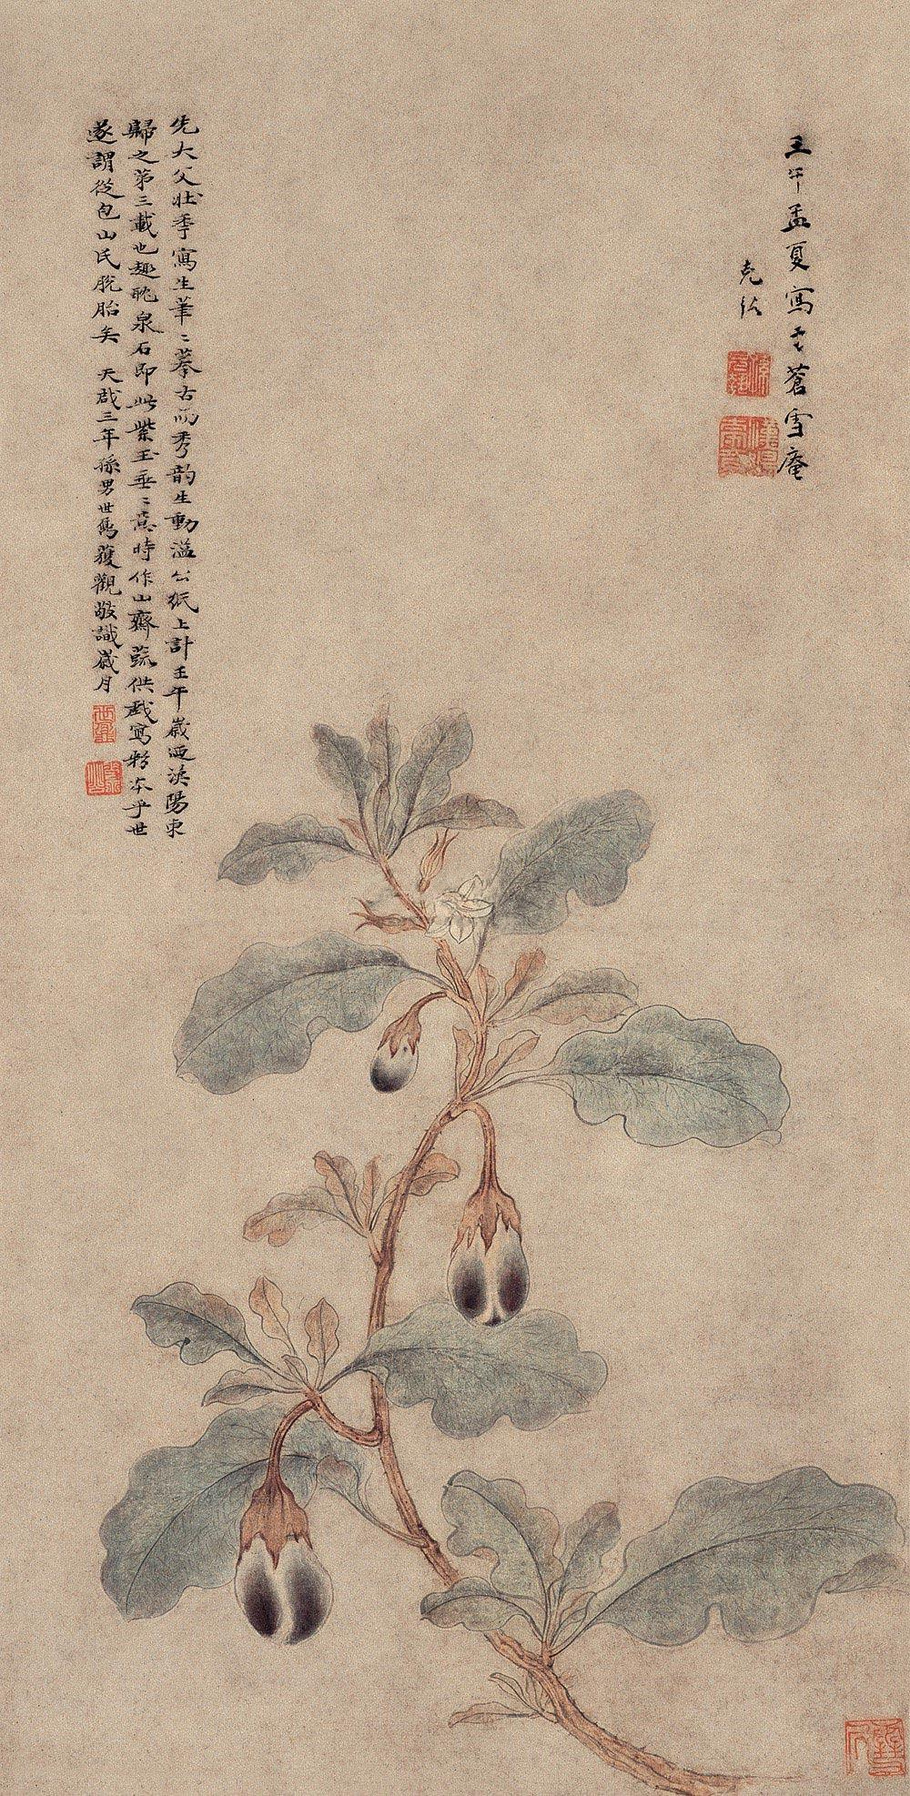 壬午孟夏寫于蒼雪庵
克弘
漢陽太守
先大父壯季寫生筆〻摹古而秀韵生動溢於紙上計壬午歲迺漢陽東
歸之第三載也趣耽泉石即此紫玉垂〻時作山齋蔬供戲寫粉本乎世
遂謂從包山氏脫胎矣 天啟三年孫男世雋獲觀敬識歲月